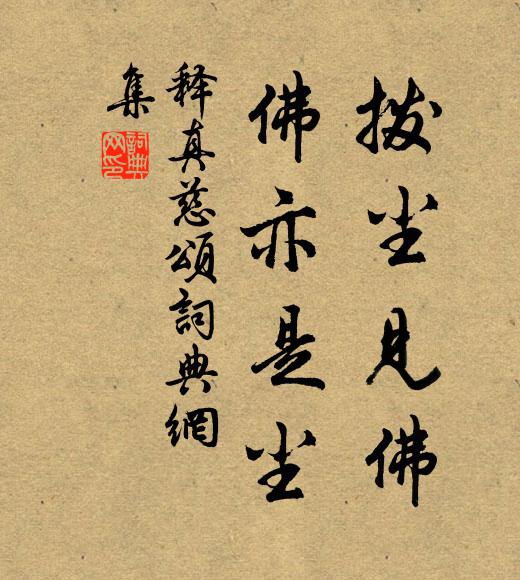 拨尘见佛
佛亦是尘
释真慈頌詞典網
集
詞典网印